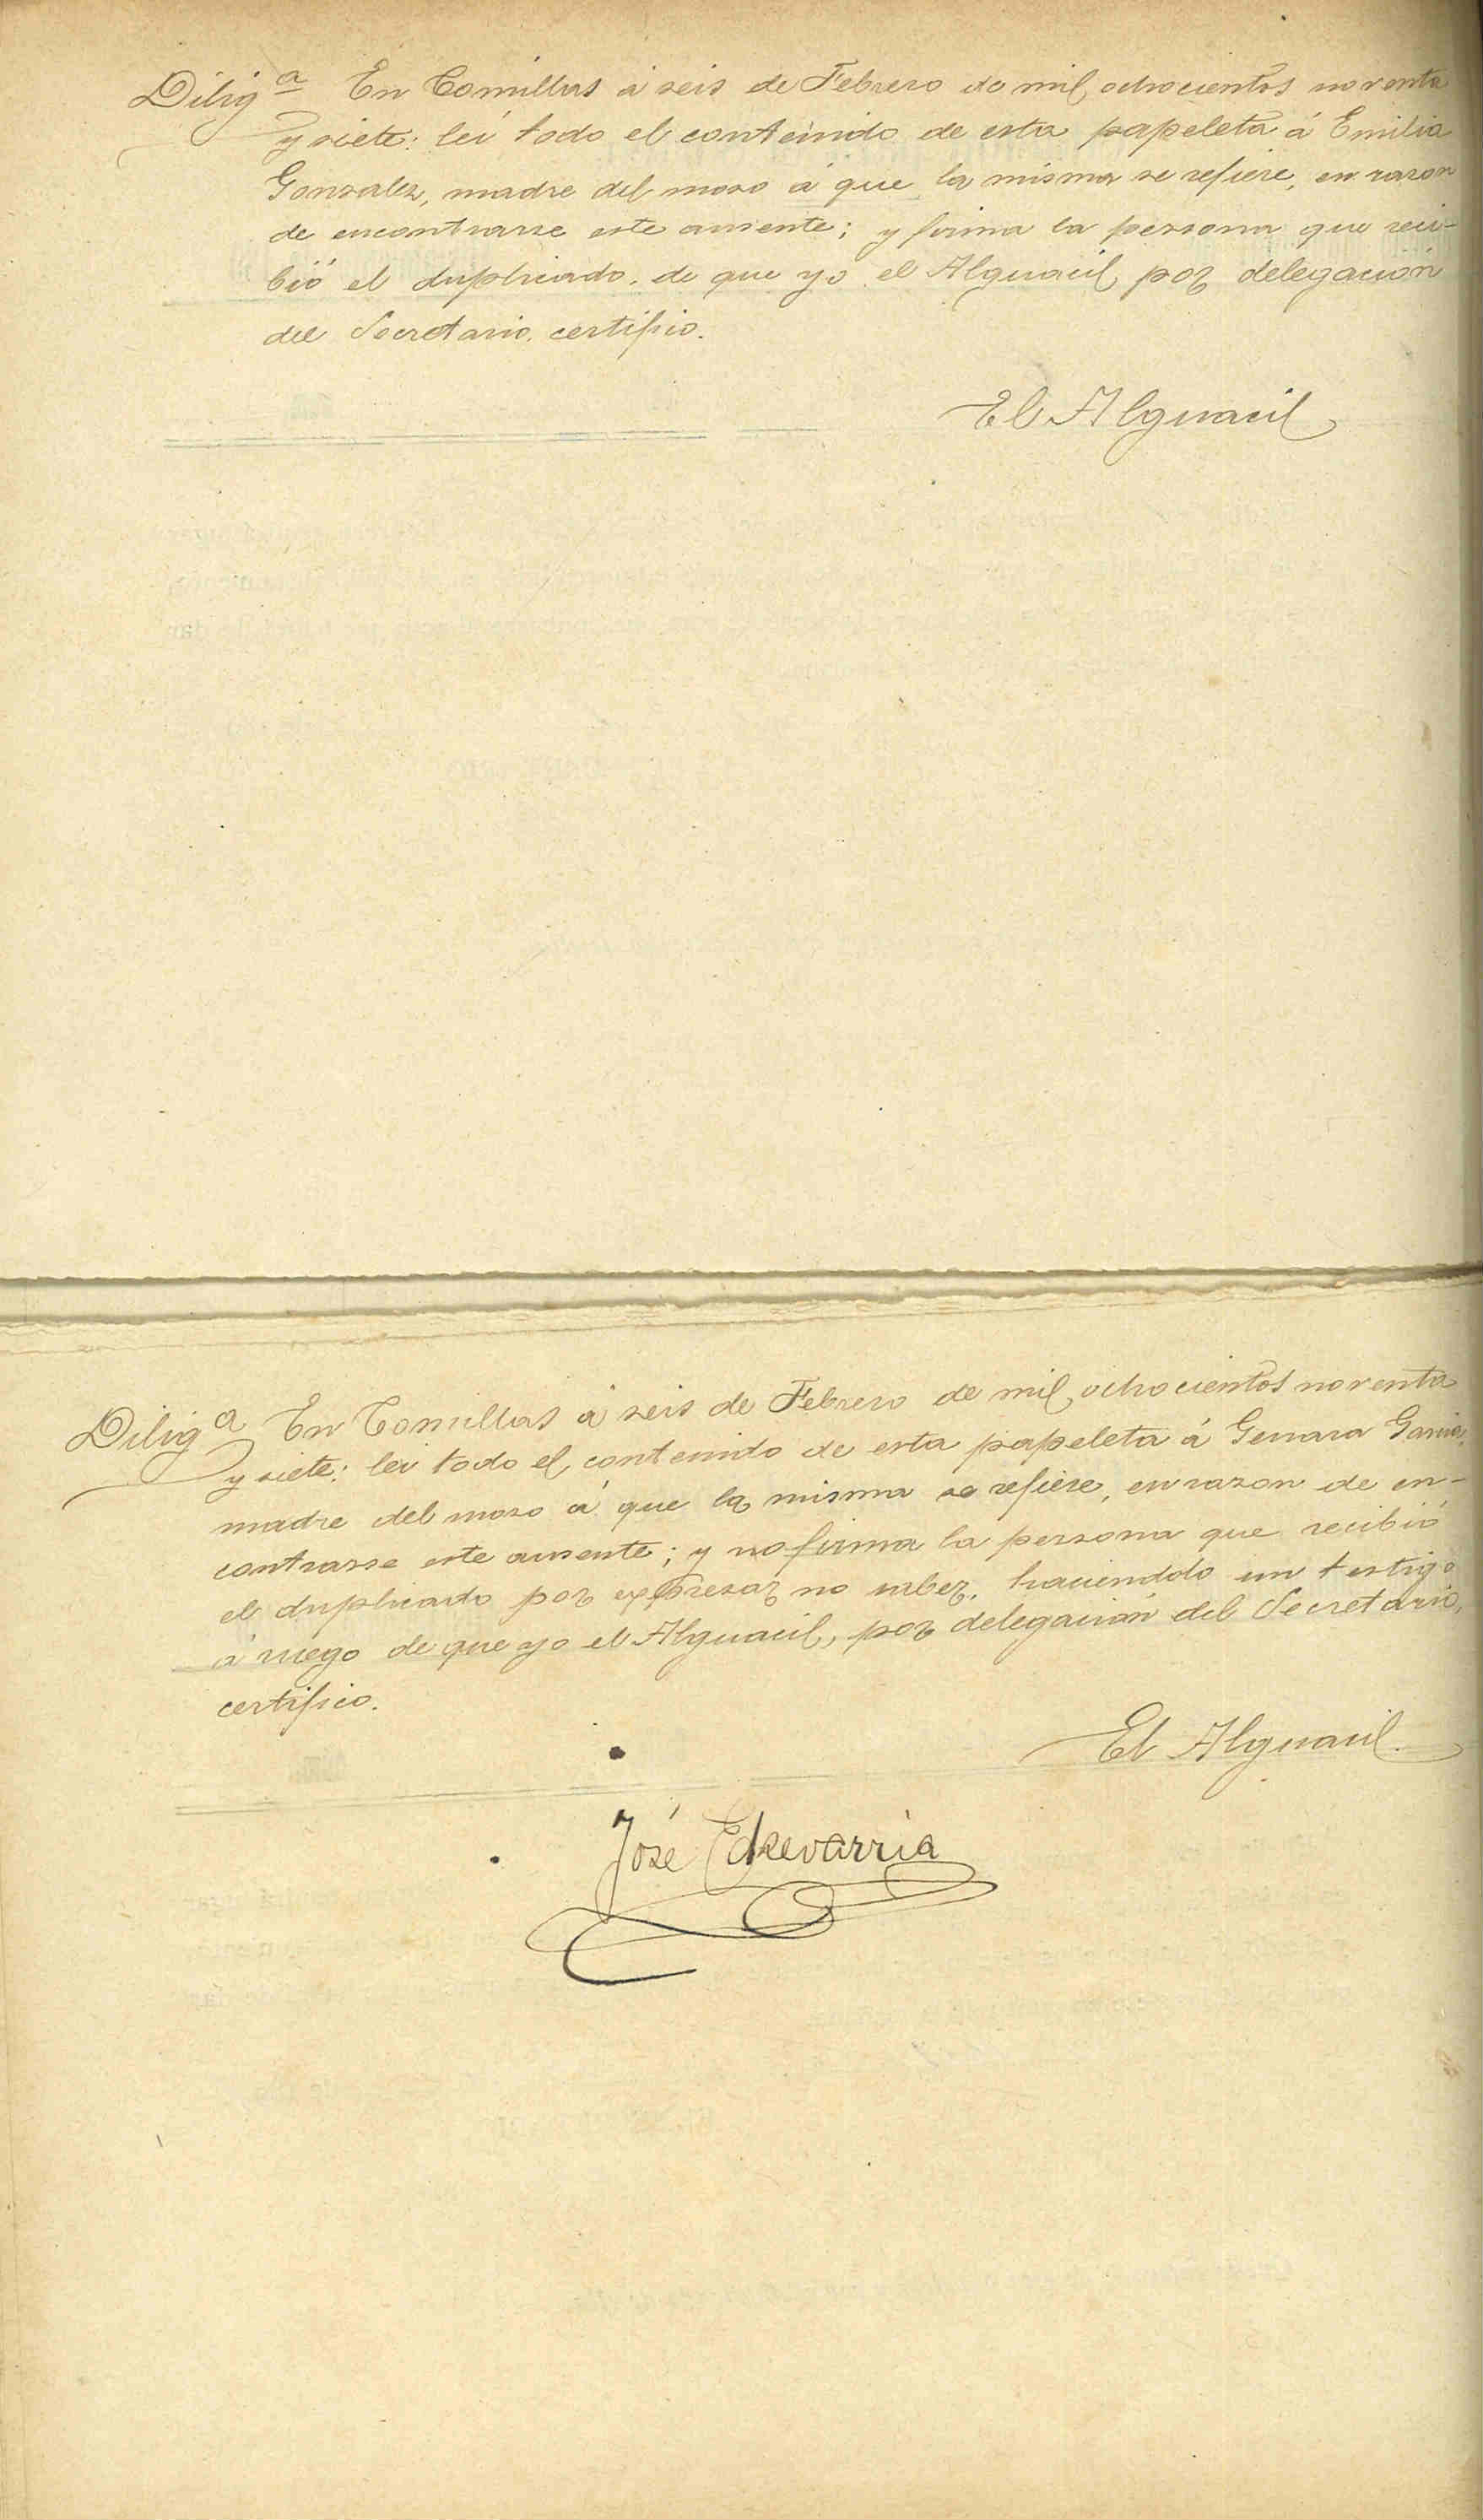 Dilig.ª En Comillas á seis de Febrero de mil ochocientos noventa
y siete: leí todo el contenido de esta papeleta á Emilia
Gonzalez, madre del mozo á que la misma se refiere, en razon
de encontrarse este ausente; y firma la persona que reci-
bió el duplicado, de que yo el Alguacil, por delegación
del Secretario, certifico.
El Alguacil
Dilig.ª En Comillas á seis de Febrero de mil ochocientos noventa
y siete: leí todo el contenido de esta papeleta á Genara Garcia,
madre del mozo á que la misma se refiere, en razon de en-
contrarse este ausente; y no firma la persona que recibió
el duplicado por expresar no saber, haciendolo un testigo
á ruego de que yo el Alguacil, por delegación del Secretario,
certifico.
El Alguacil.
José Echevarria